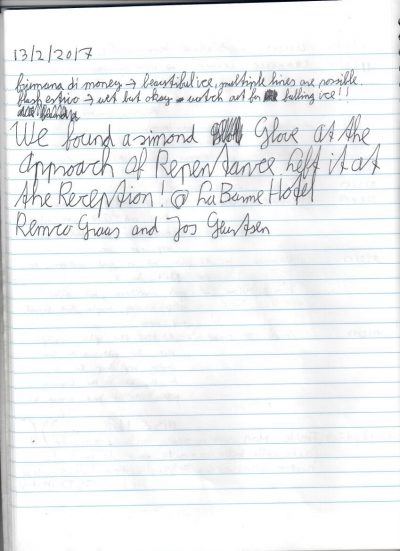 13/2/2017
fiumana di money → beautiful ice, multiple lines are possible.
flash estivo → wet but okay. watch out for falling ice!!
We found a simond Glove at the
approach of Repentance. Left it at
the Reception! @ La Barme Hotel
Remco Graas and Jos Geurtsen